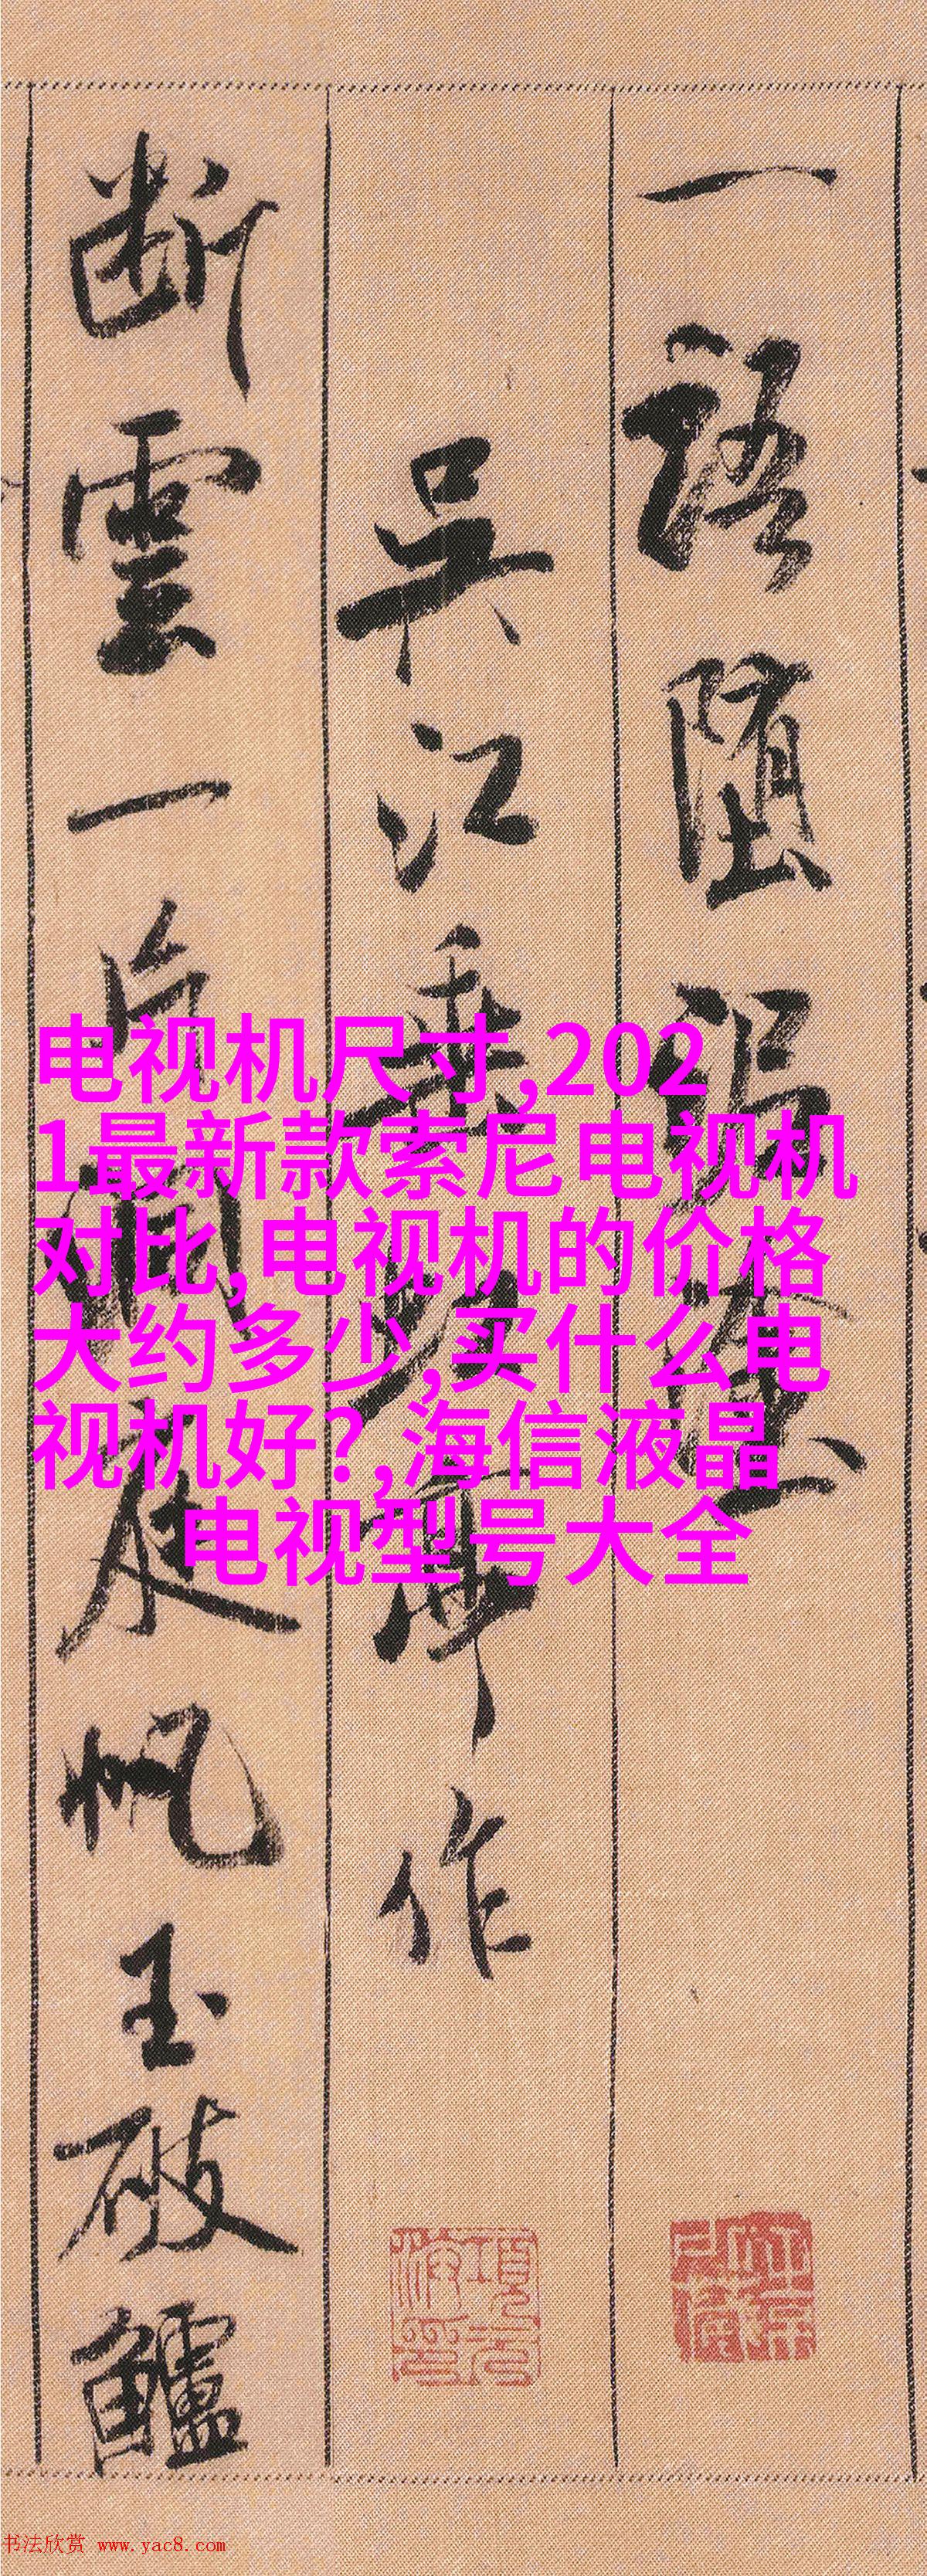 一語墮泥塗
吳江垂虹亭作
断雲一片洞庭帆玉破鱸
电视机尺寸,202
1最新款索尼电视机
对比,电视机的价格
大约多少,买什么电
视机好?,海信液晶
电视型号大全
书法欣赏 www.yac8.com